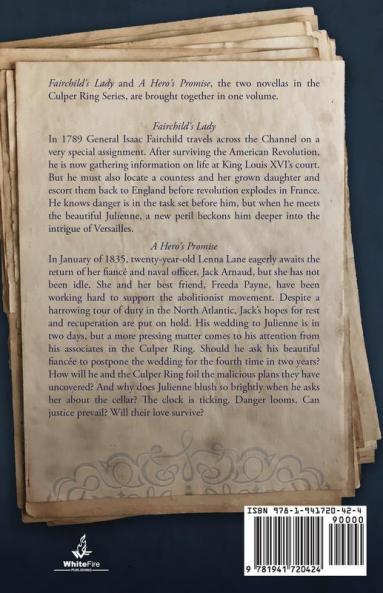 Fairchild's Lady and A Hero's Promise, the two novellas in the
Culper Ring Series, are brought together in one volume.
Fairchild's Lady
In 1789 General Isaac Fairchild travels across the Channel on a
very special assignment. After surviving the American Revolution,
he is now gathering information on life at King Louis XVI's court.
But he must also locate a countess and her grown daughter and
escort them back to England before revolution explodes in France.
He knows danger is in the task set before him, but when he meets
the beautiful Julienne, a new peril beckons him deeper into the
intrigue of Versailles.
A Hero's Promise
In January of 1835, twenty-year-old Lenna Lane eagerly awaits the
return of her fiancé and naval officer, Jack Arnaud, but she has not
been idle. She and her best friend, Freeda Payne, have been
working hard to support the abolitionist movement. Despite a
harrowing tour of duty in the North Atlantic, Jack's hopes for rest
and recuperation are put on hold. His wedding to Julienne is in
two days, but a more pressing matter comes to his attention from
his associates in the Culper Ring. Should he ask his beautiful
fiancée to postpone the wedding for the fourth time in two years?
How will he and the Culper Ring foil the malicious plans they have
uncovered? And why does Julienne blush so brightly when he asks
her about the cellar? The clock is ticking. Danger looms. Can
justice prevail? Will their love survive?
ISBN 978-1-941720-42-4
90000
WhiteFire
PUBLISHING
9 781941 720424